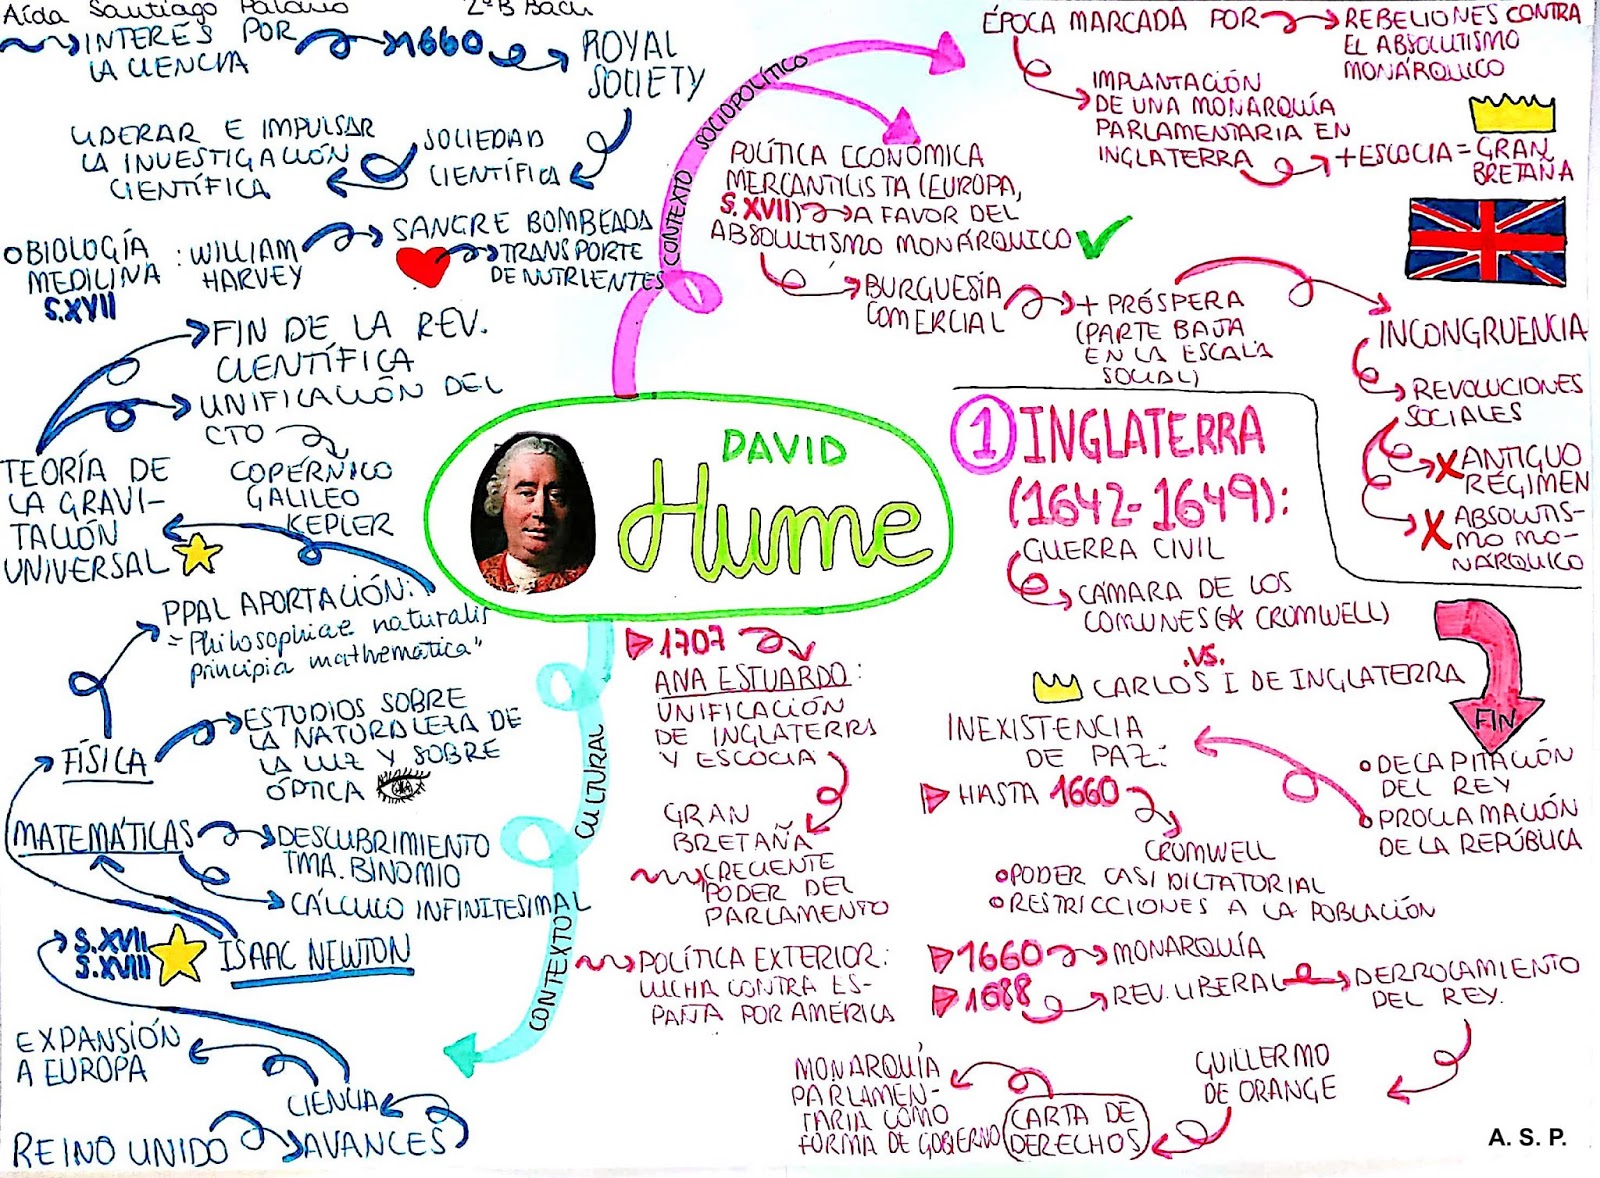 Aída Santiago Palomo 2ºB Bach
INTERÉS POR
LA CIENCIA
1660
ROYAL
SOCIETY
SOCIEDAD
CIENTÍFICA
LIDERAR E IMPULSAR
LA INVESTIGACIÓN
CIENTÍFICA
BIOLOGÍA
MEDICINA
S.XVII
: WILLIAM
HARVEY
SANGRE BOMBEADA
TRANSPORTE
DE NUTRIENTES
FIN DE LA REV.
CIENTÍFICA
UNIFICACIÓN DEL
CTO
COPÉRNICO
GALILEO
KEPLER
TEORÍA DE
LA GRAVI-
TACIÓN
UNIVERSAL
PPAL APORTACIÓN:
= "Philosophiae naturalis
principia mathematica"
FÍSICA
ESTUDIOS SOBRE
LA NATURALEZA DE
LA LUZ Y SOBRE
ÓPTICA
MATEMÁTICAS
DESCUBRIMIENTO
TMA. BINOMIO
CÁLCULO INFINITESIMAL
S.XVII
S.XVIII
ISAAC NEWTON
EXPANSIÓN
A EUROPA
CIENCIA
REINO UNIDO
AVANCES
CONTEXTO CULTURAL
CONTEXTO SOCIOPOLÍTICO
DAVID
Hume
ÉPOCA MARCADA POR
REBELIONES CONTRA
EL ABSOLUTISMO
MONÁRQUICO
IMPLANTACIÓN
DE UNA MONARQUÍA
PARLAMENTARIA EN
INGLATERRA
+ ESCOCIA = GRAN
BRETAÑA
POLÍTICA ECONÓMICA
MERCANTILISTA (EUROPA,
S. XVII) A FAVOR DEL
ABSOLUTISMO MONÁRQUICO
BURGUESÍA
COMERCIAL
+ PRÓSPERA
(PARTE BAJA
EN LA ESCALA
SOCIAL)
INCONGRUENCIA
REVOLUCIONES
SOCIALES
X ANTIGUO
RÉGIMEN
X ABSOLUTIS-
MO MO-
NÁRQUICO
1 INGLATERRA
(1642-1649):
GUERRA CIVIL
CÁMARA DE LOS
COMUNES (CROMWELL)
.VS.
CARLOS I DE INGLATERRA
FIN
DECAPITACIÓN
DEL REY
PROCLAMACIÓN
DE LA REPÚBLICA
INEXISTENCIA
DE PAZ:
HASTA 1660
CROMWELL
PODER CASI DICTATORIAL
RESTRICCIONES A LA POBLACIÓN
1660 MONARQUÍA
1688 REV. LIBERAL
DERROCAMIENTO
DEL REY.
GUILLERMO
DE ORANGE
CARTA DE
DERECHOS
MONARQUÍA
PARLAMEN-
TARIA COMO
FORMA DE GOBIERNO
1707
ANA ESTUARDO:
UNIFICACIÓN
DE INGLATERRA
Y ESCOCIA
GRAN
BRETAÑA
CRECIENTE
PODER DEL
PARLAMENTO
POLÍTICA EXTERIOR:
LUCHA CONTRA ES-
PAÑA POR AMÉRICA
A. S. P.